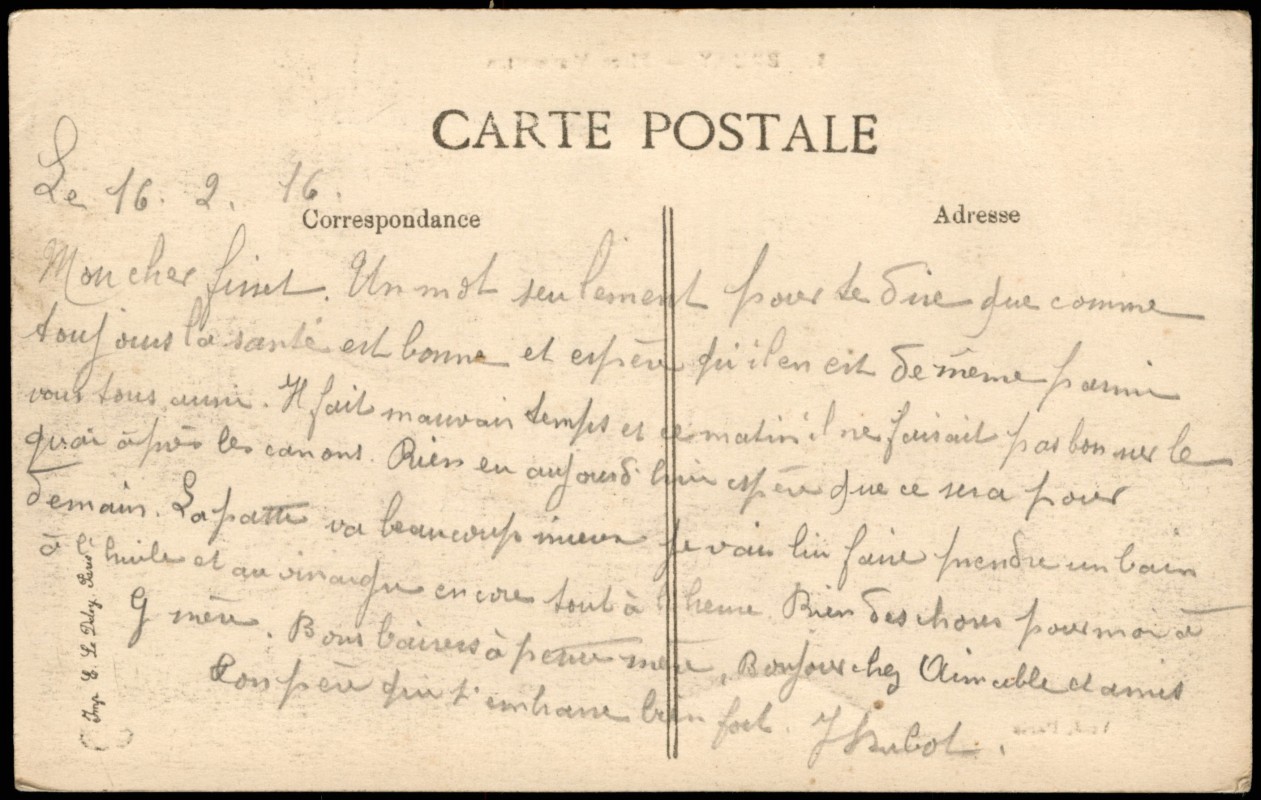 CARTE POSTALE
Le 16. 2. 16.
Correspondance
Adresse
Mon cher finet. Un mot seulement pour te dire que comme
toujours la santé est bonne et espère qu'il en est de même parmi
vous tous aussi. Il fait mauvais temps et ce matin il ne faisait pas bon sur le
quai après les canons. Rien eu aujourd'hui espère que ce sera pour
demain. La patte va beaucoup mieux je vais lui faire prendre un bain
à l'huile et au vinaigre encore tout à l'heure. Rien des choses pour moi à
G mère. Bons baisers à petite mère, Bonjour chez Aimable et amis
Ton père qui t'embrasse bien fort.
Imp. E. Le Deley, Paris